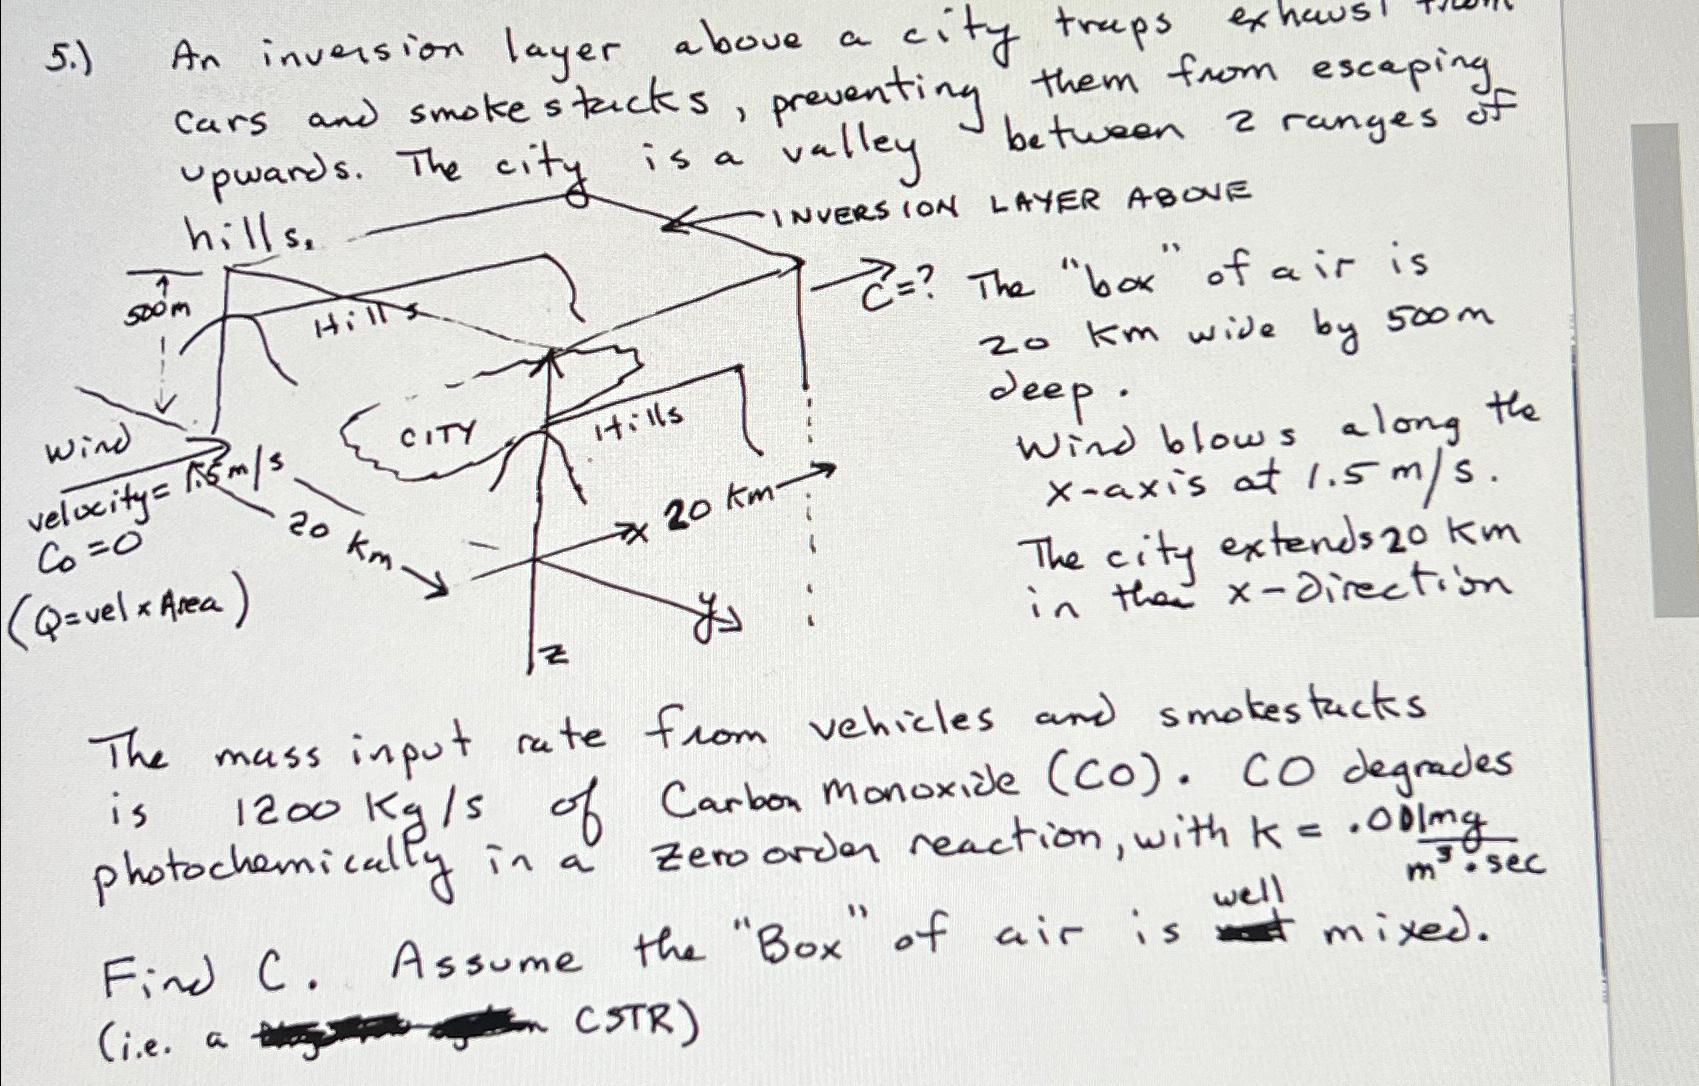 5.) An inversion layer above a city traps exhaust from
cars and smokestacks, preventing them from escaping
upwards. The city is a valley between 2 ranges of
hills.
INVERSION LAYER ABOVE
500m
Hills
C=?
The "box" of air is
20 km wide by 500m
deep.
CITY
Hills
Wind
velocity= 1.5m/s
C₀=0
(Q=vel x Area)
20 km
x
20 km
y
z
Wind blows along the
x-axis at 1.5 m/s.
The city extends 20 km
in the x-direction
The mass input rate from vehicles and smokestacks
is 1200 Kg/s of Carbon Monoxide (CO). CO degrades
photochemically in a zero order reaction, with K = .001mg
m³.sec
Find C. Assume the "Box" of air is well mixed.
(i.e. a CSTR)